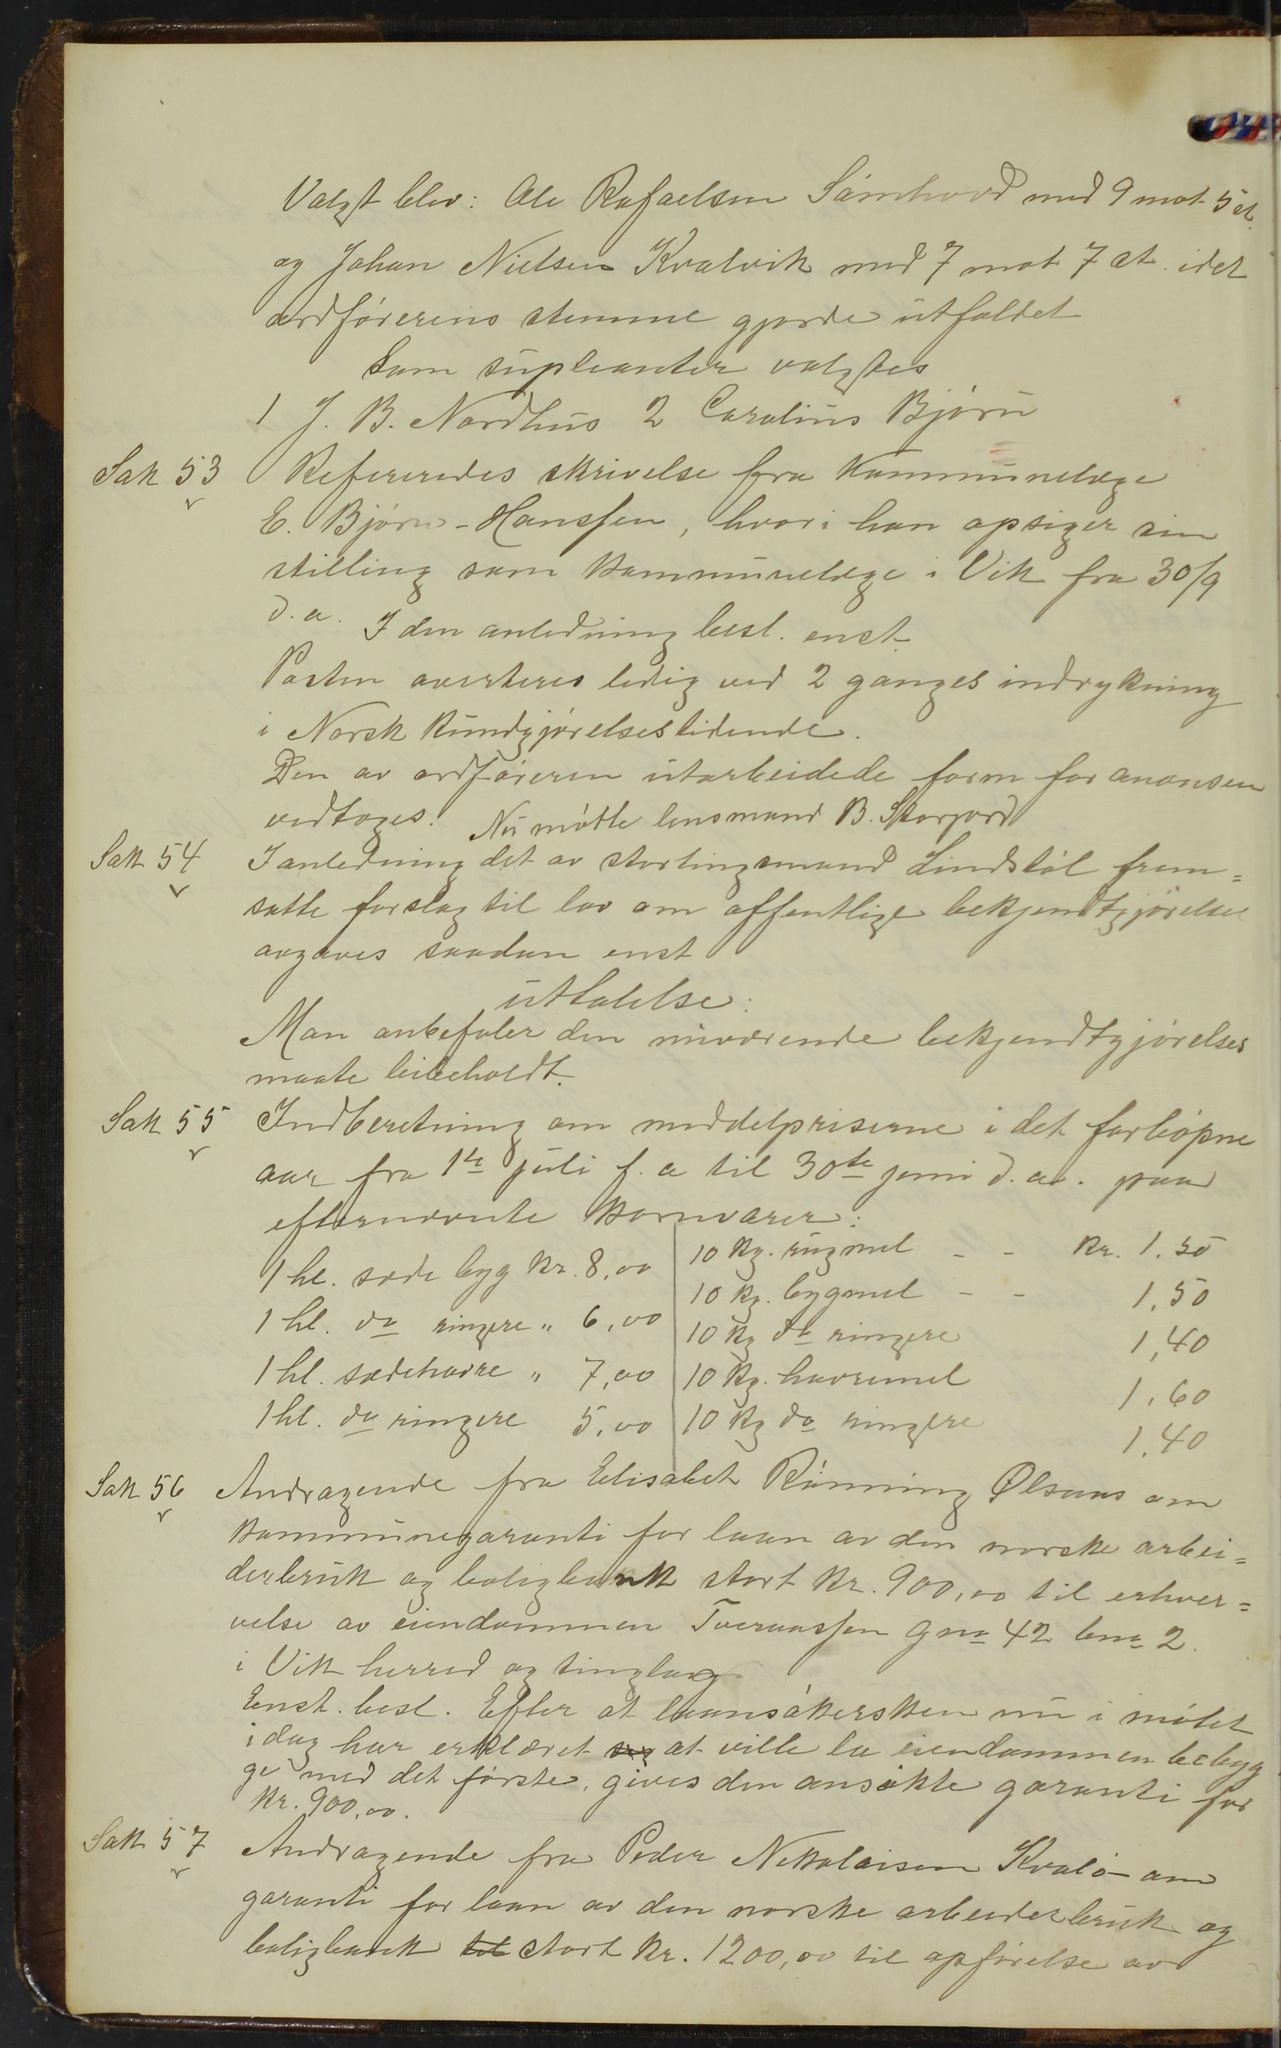 Valgt blev: Ole Rafaelsen Sømhovd med 9 mot 5 st.
og Johan Nielsen Kvalvik med 7 mot 7 st. idet
ordførerens stemme gjorde utfaldet
Som supleanter valgtes
1 J. B. Nordhus 2 Carolius Bjørn
Sak 53 Refereredes skrivelse fra kommunelæge
E. Bjørn-Hanssen, hvori han opsiger sin
stilling som kommunelæge i Vik fra 30/9
d.a. I den anledning besl. enst.
Posten averteres ledig ved 2 ganges indrykning
i Norsk Kundgjørelsestidende.
Den av ordføreren utarbeidede form for anonsen
vedtoges. Nu møtte lensmand B. Storjord
Sak 54 I anledning det av stortingsmand Lindstøl frem=
satte forslag til lov om offentlige bekjendtgjørelser
avgaves saadan enst
uttalelse:
Man anbefaler den nuværende bekjendtgjørelses
maate beibeholdt.
Sak 55 Indberetning om middelpriserne i det forløpne
aar fra 1ste juli f. a til 30te juni d.a. paa
efternævnte kornvarer:
1 hl. sæde byg kr. 8,00 10 kg. rugmel - - kr. 1.50
1 hl. do ringere " 6,00 10 kg. bygmel - - 1,50
1 hl. sædehavre " 7,00 10 kg do ringere 1,40
1 hl. do ringere 5,00 10 kg. havremel 1,60
10 kg do ringere 1,40
Sak 56 Andragende fra Elisabet Rønning Ølsvas om
kommunegaranti for laan av den norske arbei=
derbruk og boligbank stort kr. 900,00 til erhver=
velse av eiendommen Tveraassen gno 42 bno 2.
i Vik herred og tinglag
Enst. besl. Efter at laansøkersken nu i møtet
idag har erklæret at ville la eiendommen bebyg
ge med det første, gives den ansøkte garanti for
kr. 900,00.
Sak 57 Andragende fra Peder Nikolaisen Kvalø om
garanti for laan av den norske arbeiderbruk og
boligbank til stort kr. 1200,00 til opførelse av